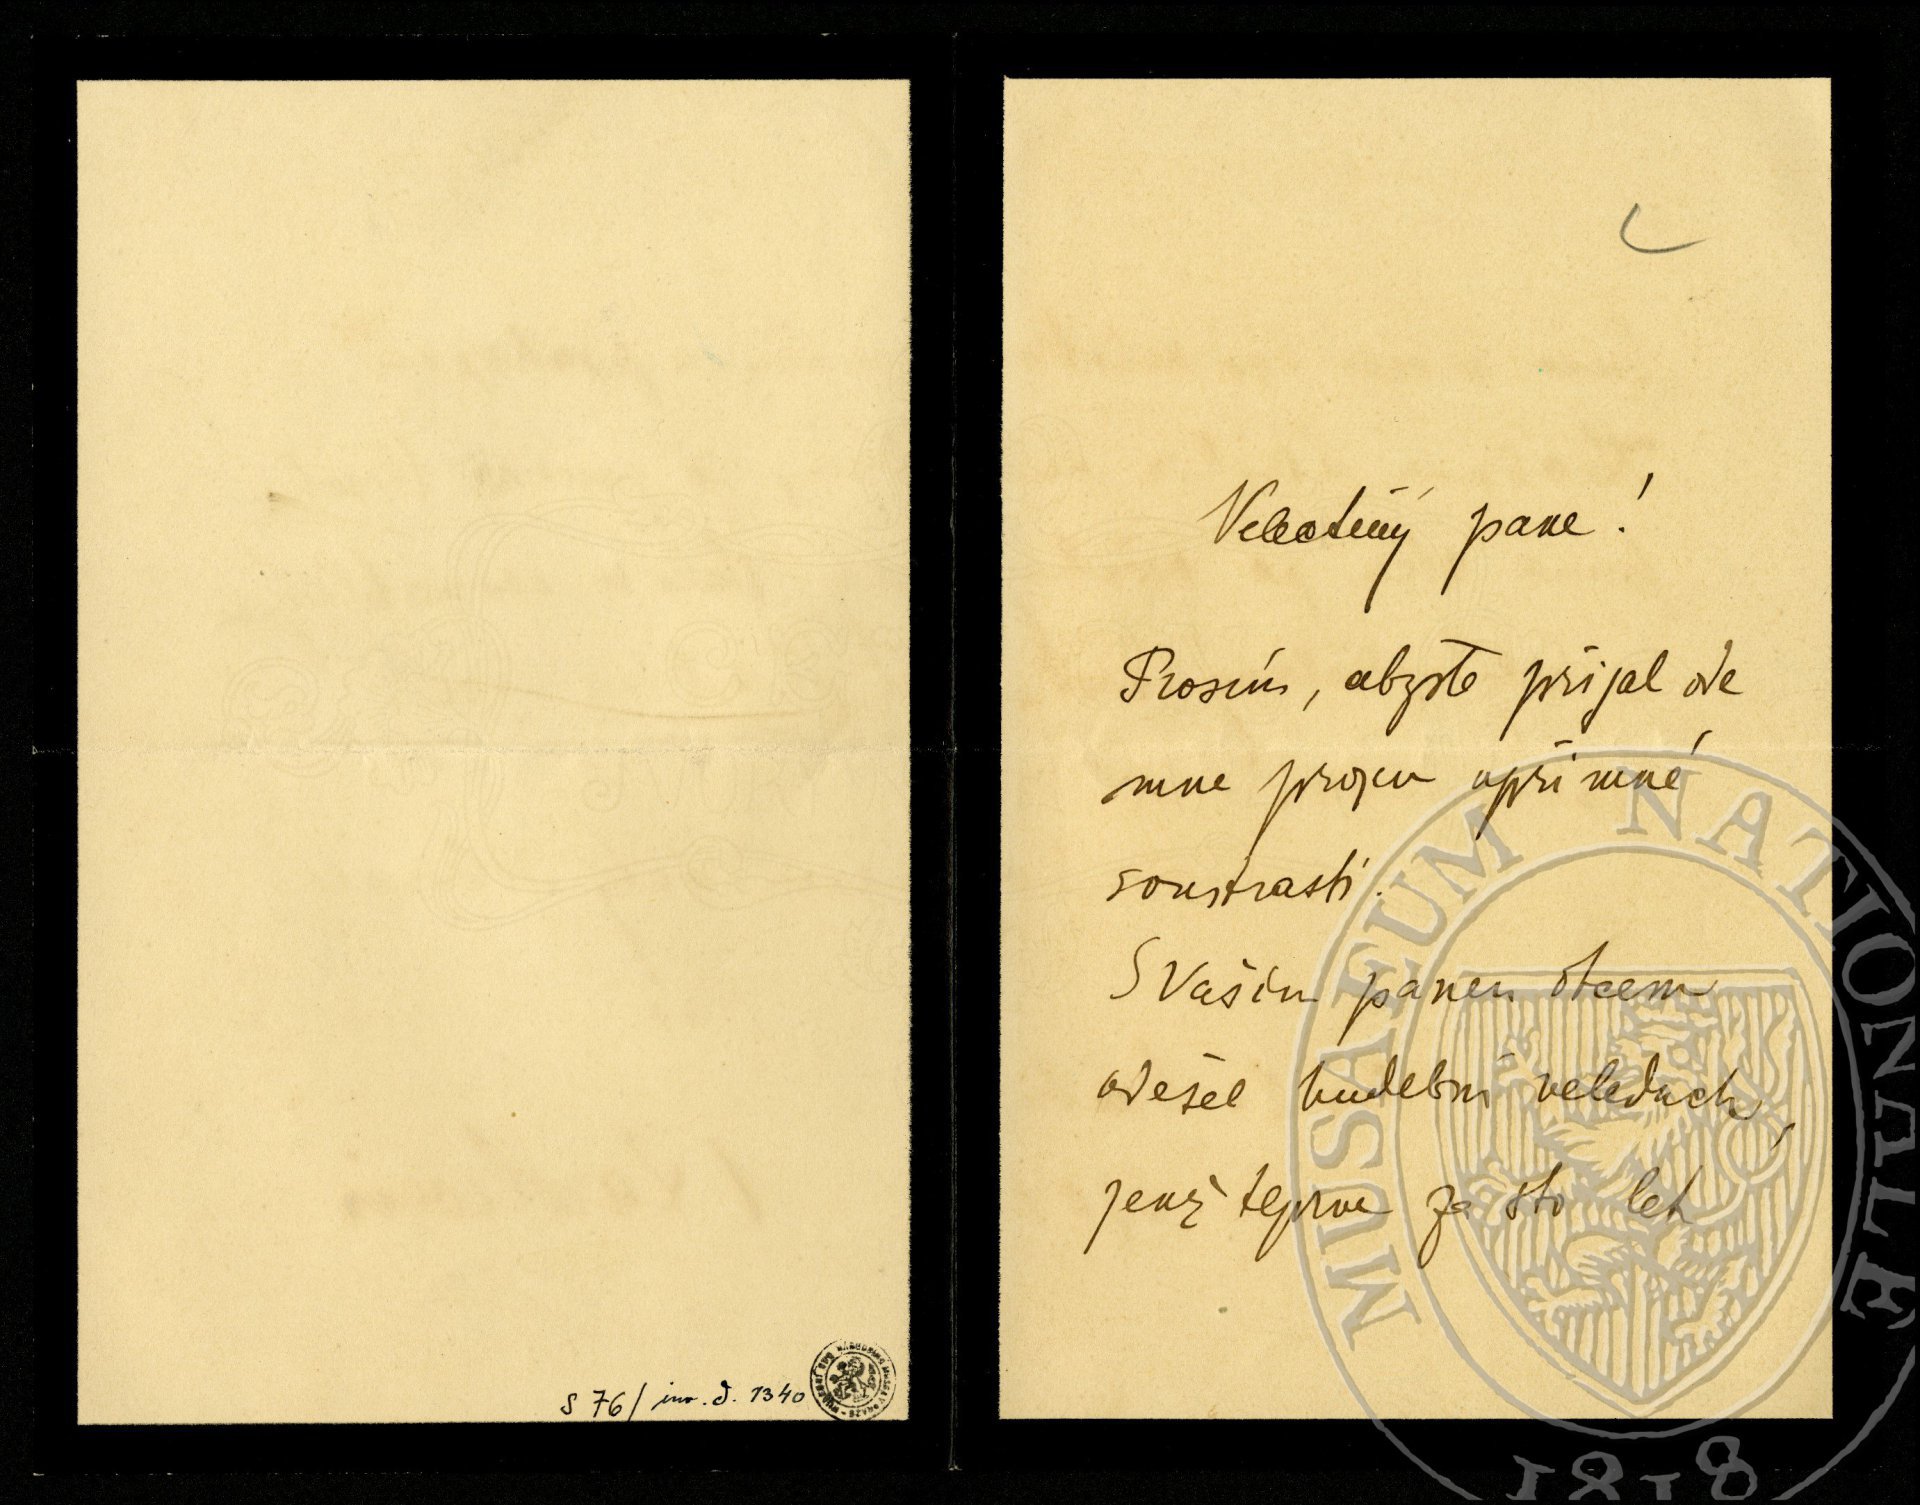 S 76/ inv. č. 1340
Velectěný pane!
Prosím, abyste přijal ode
mne projev upřímné
soustrasti.
S Vaším panem otcem
odešel hudební veleduch,
jenž teprve za sto let
MUSAEUM NATIONALE
1818